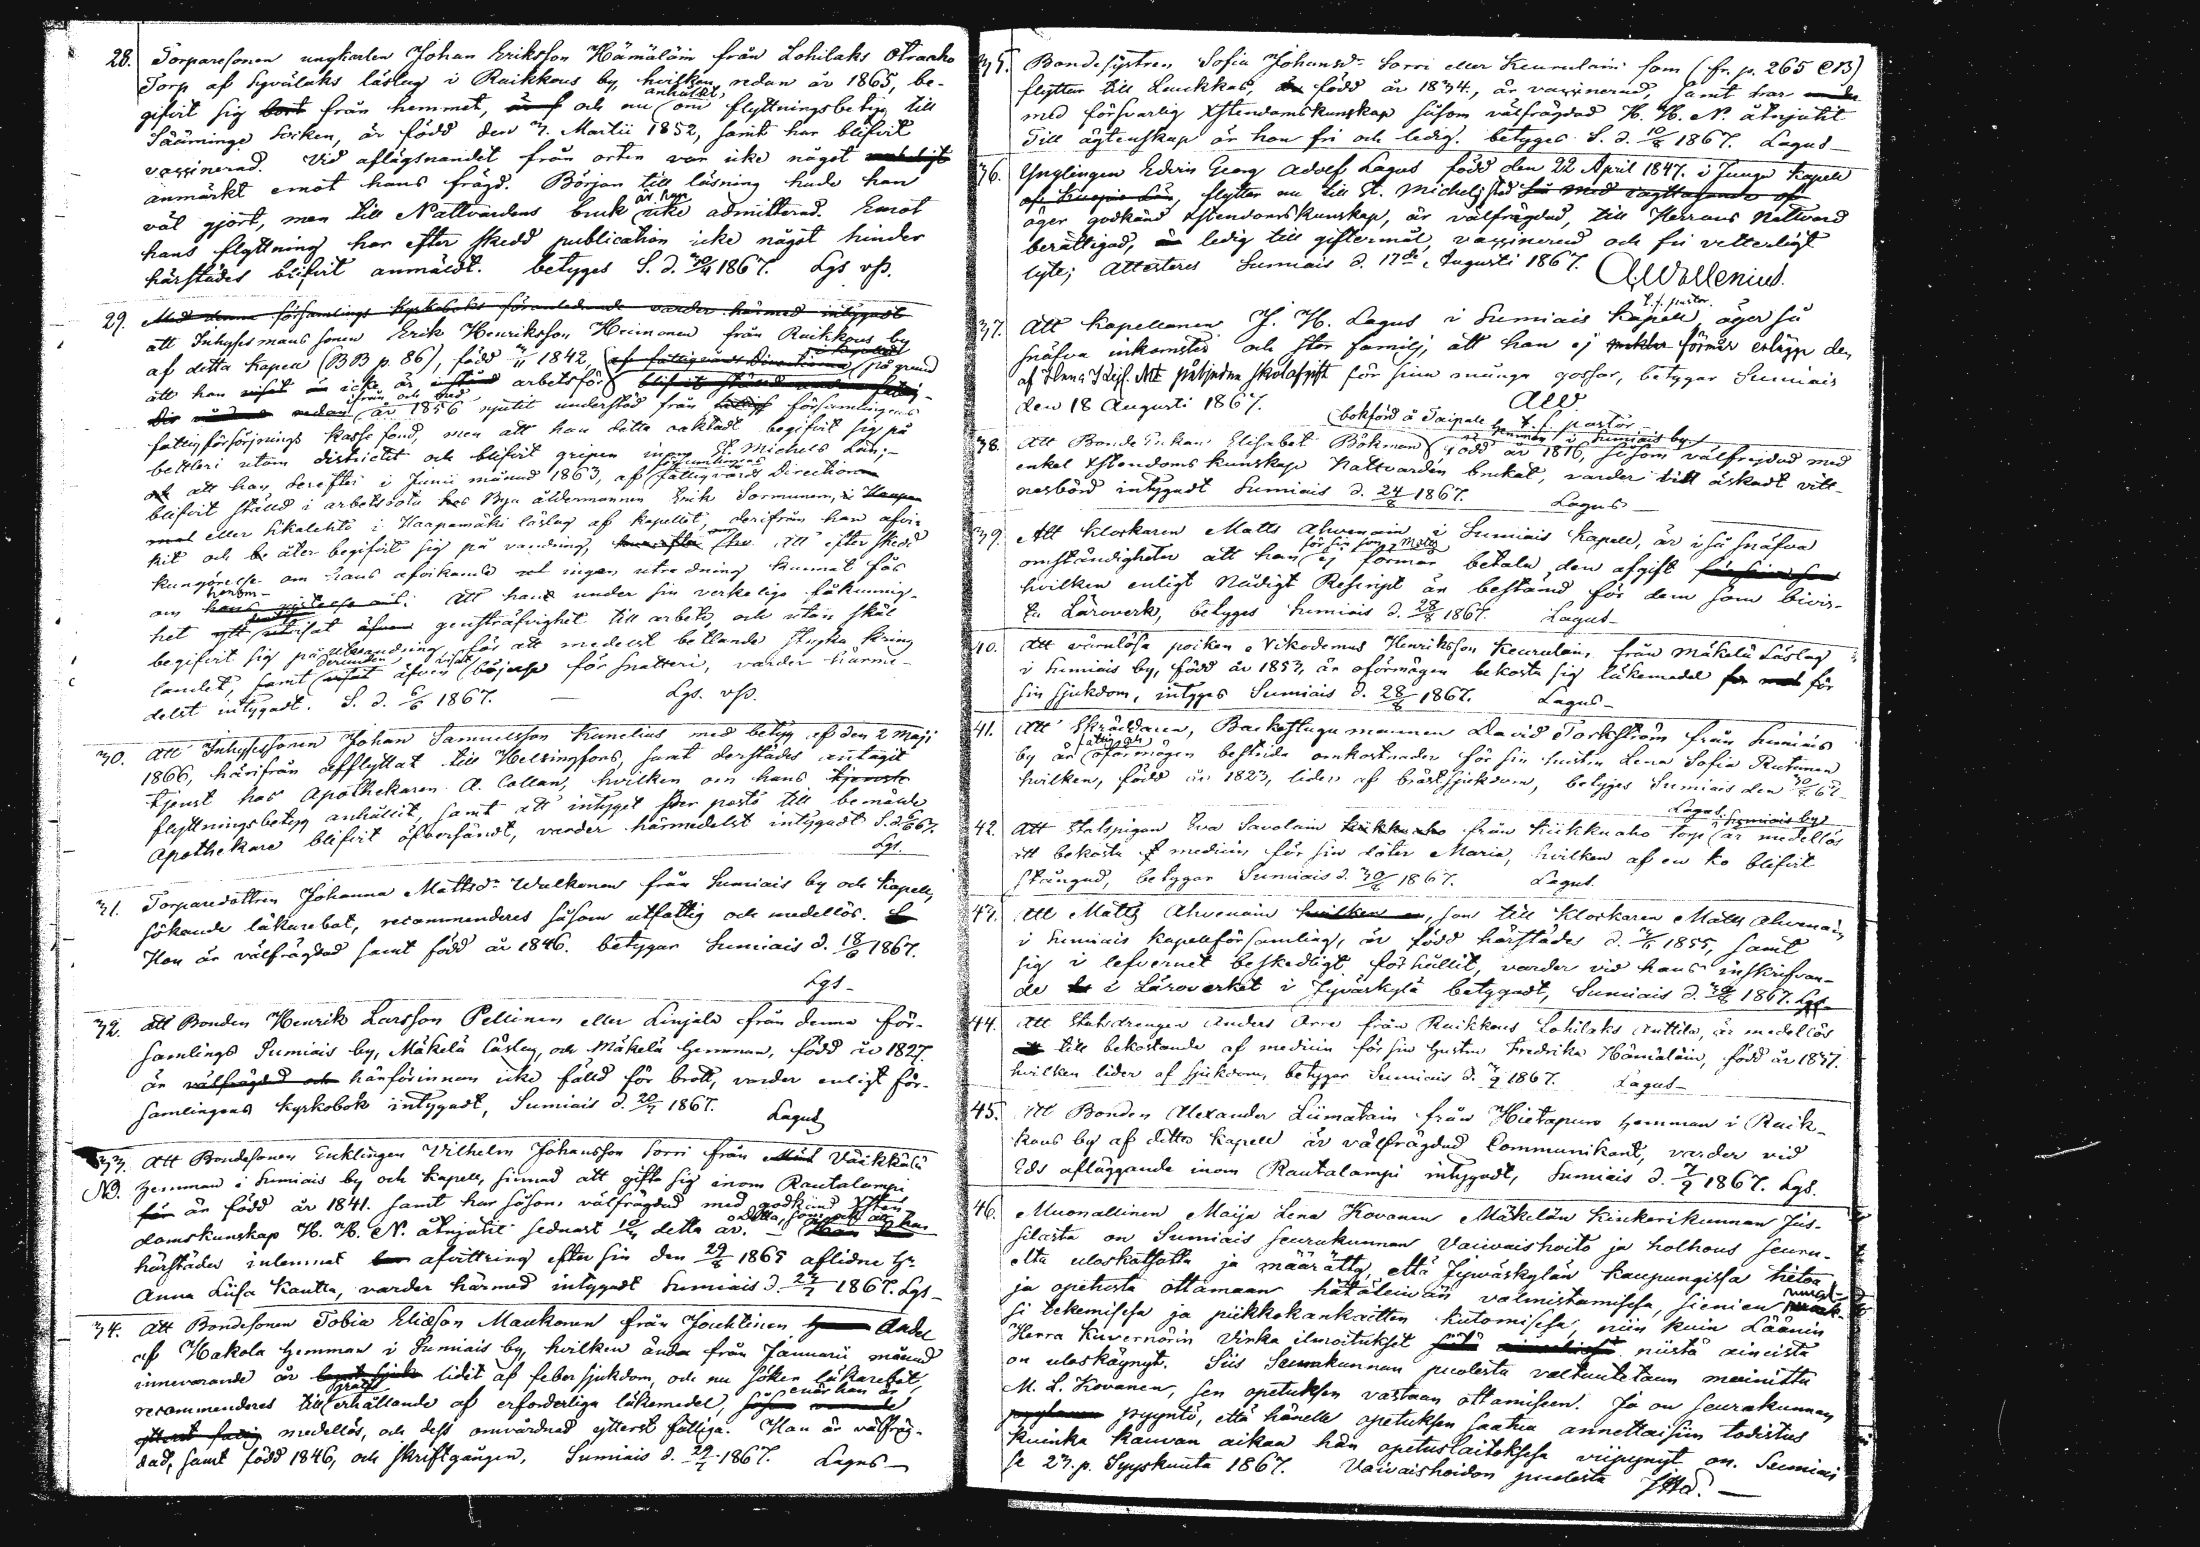 28. Torparesonen ungkarlen Johan Eriksson Hämäläin från Lohilaks Otraaho
Torp af Syvälaks läslag i Raikkous by, hvilken redan år 1865, be-
gifvit sig bort från hemmet, och nu anhållit om flyttningsbetyg till
Sääminge Socken, är född den 7. Martii 1852, samt har blifvit
vaccinerad. Vid aflägsnandet från orten var icke något
anmärkt emot hans frägd. Början till läsning hade han
väl gjort, men till Nattvardens bruk är han icke admitterad. Emot
hans flyttning har efter skedd publication icke något hinder
härstädes blifvit anmäldt. betyges S. d. 1867. Lgs vp.
29. Med denna församlings Kyrkoboks föranledande varder härmed intygadt
att Inhysesmans sonen Erik Henriksson Heimonen från Raikkous by
af detta Kapell (BB p. 86), född 1842, (på grund
att han icke är arbetsför
redan ifrån och med år 1856 njutit understöd från församlingens
fattigförsörjnings Kassa fond, men att han detta oaktadt begifvit sig på
bettleri utom districtet och blifvit gripen inom St. Michels Län;
att han derefter i Junii månad 1863, af församlingens Fattigvårds Direction
blifvit ställd i arbete hos Bya åldermannen Erik Sormunen, i Haapa
eller Likalehto i Haapamäki läslag af Kapellet, derifrån han afvi-
kit och åter begifvit sig på vandring, Att efter skedd
kungörelse om hans afvikande ingen utredning kunnat fås
om honom. Att han under sin verkeliga
het visat gensträfvighet till arbete, och utan skäl
begifvit sig på vandring, för att medelst bettlande stryka kring
landet, samt derunder visat äfven böjelse för snatteri, varder härme-
delst intygadt. S. d. 6/6 1867. Lgs. vp.
30. Att Inhysessonen Johan Samuelsson Kunelius med betyg af den 2 Maji
1866, härifrån afflyttat till Helsingfors, samt derstädes antagit
tjenst hos Apothekaren A. Collan, hvilken om hans
flyttningsbetyg anhållit, samt att intyget per posto till bemälde
Apothekare blifvit öfversändt, varder härmedelst intygadt S. d. 6/6 67.
Lgs.
31. Torparedottren Johanna Mattsdr Wulkonen från Sumiais by och Kapell,
sökande läkarebot, recommenderes såsom utfattig och medellös.
Hon är välfrägdad samt född år 1846. betygar Sumiais d. 18/6 1867.
Lgs-
32. Att Bonden Henrik Larsson Pellinen eller Linjala från denna för-
samlings Sumiais by, Mäkelä Läslag, och Mäkelä hemman, född år 1827.
är välfrägdad och härförinnan icke fälld för brott, varder enligt för-
samlingens Kyrkobok intygadt, Sumiais d. 20/7 1867. Lagus
33. Att Bondesonen Enklingen Vilhelm Johansson Sorri från Väikkälä
NB. hemman i Sumiais by och Kapell, sinnad att gifta sig inom Rautalampi
är född år 1841. samt har såsom välfrägdad med godkänd Xsten-
domskunskap H. H. N. åtnjutit sednast detta år.
härstädes inlemnat afvittring efter sin den 29/8 1865 aflidna hu
Anna Liisa Kautto, varder härmed intygadt Sumiais d. 27/7 1867. Lgs-
34. Att Bondesonen Tobias Eliasson Maukonen från Jouhtinen Andel
af Hakola hemman i Sumiais by, hvilken ända från Januarii månad
innevarande år lidit af feber sjukdom, och nu söker läkarebot,
recommenderes till gratis erhållande af erforderliga läkemedel, enär han är
medellös, och dess omvårdnad ytterst fattiga. Han är välfräg-
dad, samt född 1846, och skriftgången, Sumiais d. 29/7 1867. Lagus-
35. Bondesystren Sofia Johansdr Sorri eller Keurulain som (fr. p. 265 CB)
flyttar till Laukkas, född år 1834, är vaccinerad, samt har
med försvarlig Xstendomskunskap såsom välfrägdad H. H. N. åtnjutit
Till ägtenskap är hon fri och ledig. betyges S. d. 10/8 1867. Lagus-
36. Ynglingen Edvin Georg Adolf Lagus född den 22 April 1847. i Junga Kapell
af Kuopio Län, flyttar nu till St. Michels stad
äger godkänd Xstendomskunskap, är välfrägdad, till Herrans Nattvard
berättigad, ledig till giftermål, vaccinerad och fri vetterligt
lyte; Attesteres Sumiais d. 17de Augusti 1867. AWallenius.
t. f. pastor.
37. Att Kapellanen J. H. Lagus i Sumiais Kapell, äger så
snäfva inkomster och stor familj, att han ej förmår erlägga den
påbjudna skolafgift för sina många gossar, betygar Sumiais
den 18 Augusti 1867. AW
t. f. pastor
38. Att Bonde Enkan Elisabet Bökman (bokförd å Taipale hemman i Sumiais by) född år 1816, såsom välfrejdad med
enkel Xstendomskunskap Nattvarden brukat, varder till åskadt vitt-
nesbörd intygadt Sumiais d. 24/8 1867. Lagus-
39. Att Klockaren Matts Ahvenain i Sumiais Kapell, är i så snäfva
omständigheter att han för sin son Matts ej förmår betala den afgift
hvilken enligt Nådigt Rescript är bestämd för dem som bivis-
ta Läroverk, betyges Sumiais d. 28/8 1867. Lagus-
40. Att värnlösa pojken Nikodemus Henriksson Keurulain från Mäkelä Läslag
i Sumiais by, född år 1853, är oförmögen bekosta sig läkemedel för
sin sjukdom, intyges Sumiais d. 28/8 1867. Lagus-
41. Att Skräddaren, Backstugumannen David Torkström från Sumiais
by är fattig och oförmögen bestrida omkostnader för sin hustru Lena Sofia Rutanen
hvilken, född år 1823, lider af bråcksjukdom, betyges Sumiais den 30/8 67.
Lagus
42. Att Statspigan Eva Savolain från Kiikkuaho torp i Sumiais by är medellös
att bekosta medicin för sin dotter Maria, hvilken af en ko blifvit
stångad, betygar Sumiais d. 30/8 1867. Lagus.
43. Att Matts Ahvenain, son till Klockaren Matts Ahvenain
i Sumiais Kapellförsamling, är född härstädes d. 1855, samt
sig i lefvernet beskedligt förhållit, varder vid hans inskrifvan-
de i Läroverket i Jyväskylä betygadt, Sumiais d. 30/8 1867. Lgs-
44. Att Statsdrengen Anders Arre från Raikkous Lohilaks Anttila, är medellös
till bekostande af medicin för sin hustru Fredrika Hämäläin, född år 1837.
hvilken lider af sjukdom, betygar Sumiais d. 1867. Lagus-
45. Att Bonden Alexander Liimatain från Hietapuro hemman i Raik-
kous by af detta Kapell är välfrägdad Communikant, varder vid
Eds afläggande inom Rautalampi intygadt, Sumiais d. 7/9 1867. Lgs.
46. Muonallinen Maija Lena Kovanen Mäkelän Kinkerikunnan Jus-
silasta on Sumiais seurakunnan Vaivaishoito ja holhous seura-
elta uloskatsottu ja määrätty, että Jyväskylän Kaupungissa tietoa
ja opetusta ottamaan hätäleivän valmistamisessa, sienien
si tekemisessä ja pukkokankaitten kutomisessa, niin kuin Läänin
Herra Kuvernörin Virka ilmoitukset niistä aineista
on uloskäynyt. Siis Seurakunnan puolesta valtuutetaan mainittu
M. L. Kovanen, sen opetuksen vastaan ottamiseen. Ja on seurakunnan
pyyntö, että hänelle opetuksen saatua annettaisiin todistus
kuinka kauvan aikaa hän opetuslaitoksessa viipynyt on. Sumiais
se 23. p. Syyskuuta 1867. Vaivaishoidon puolesta